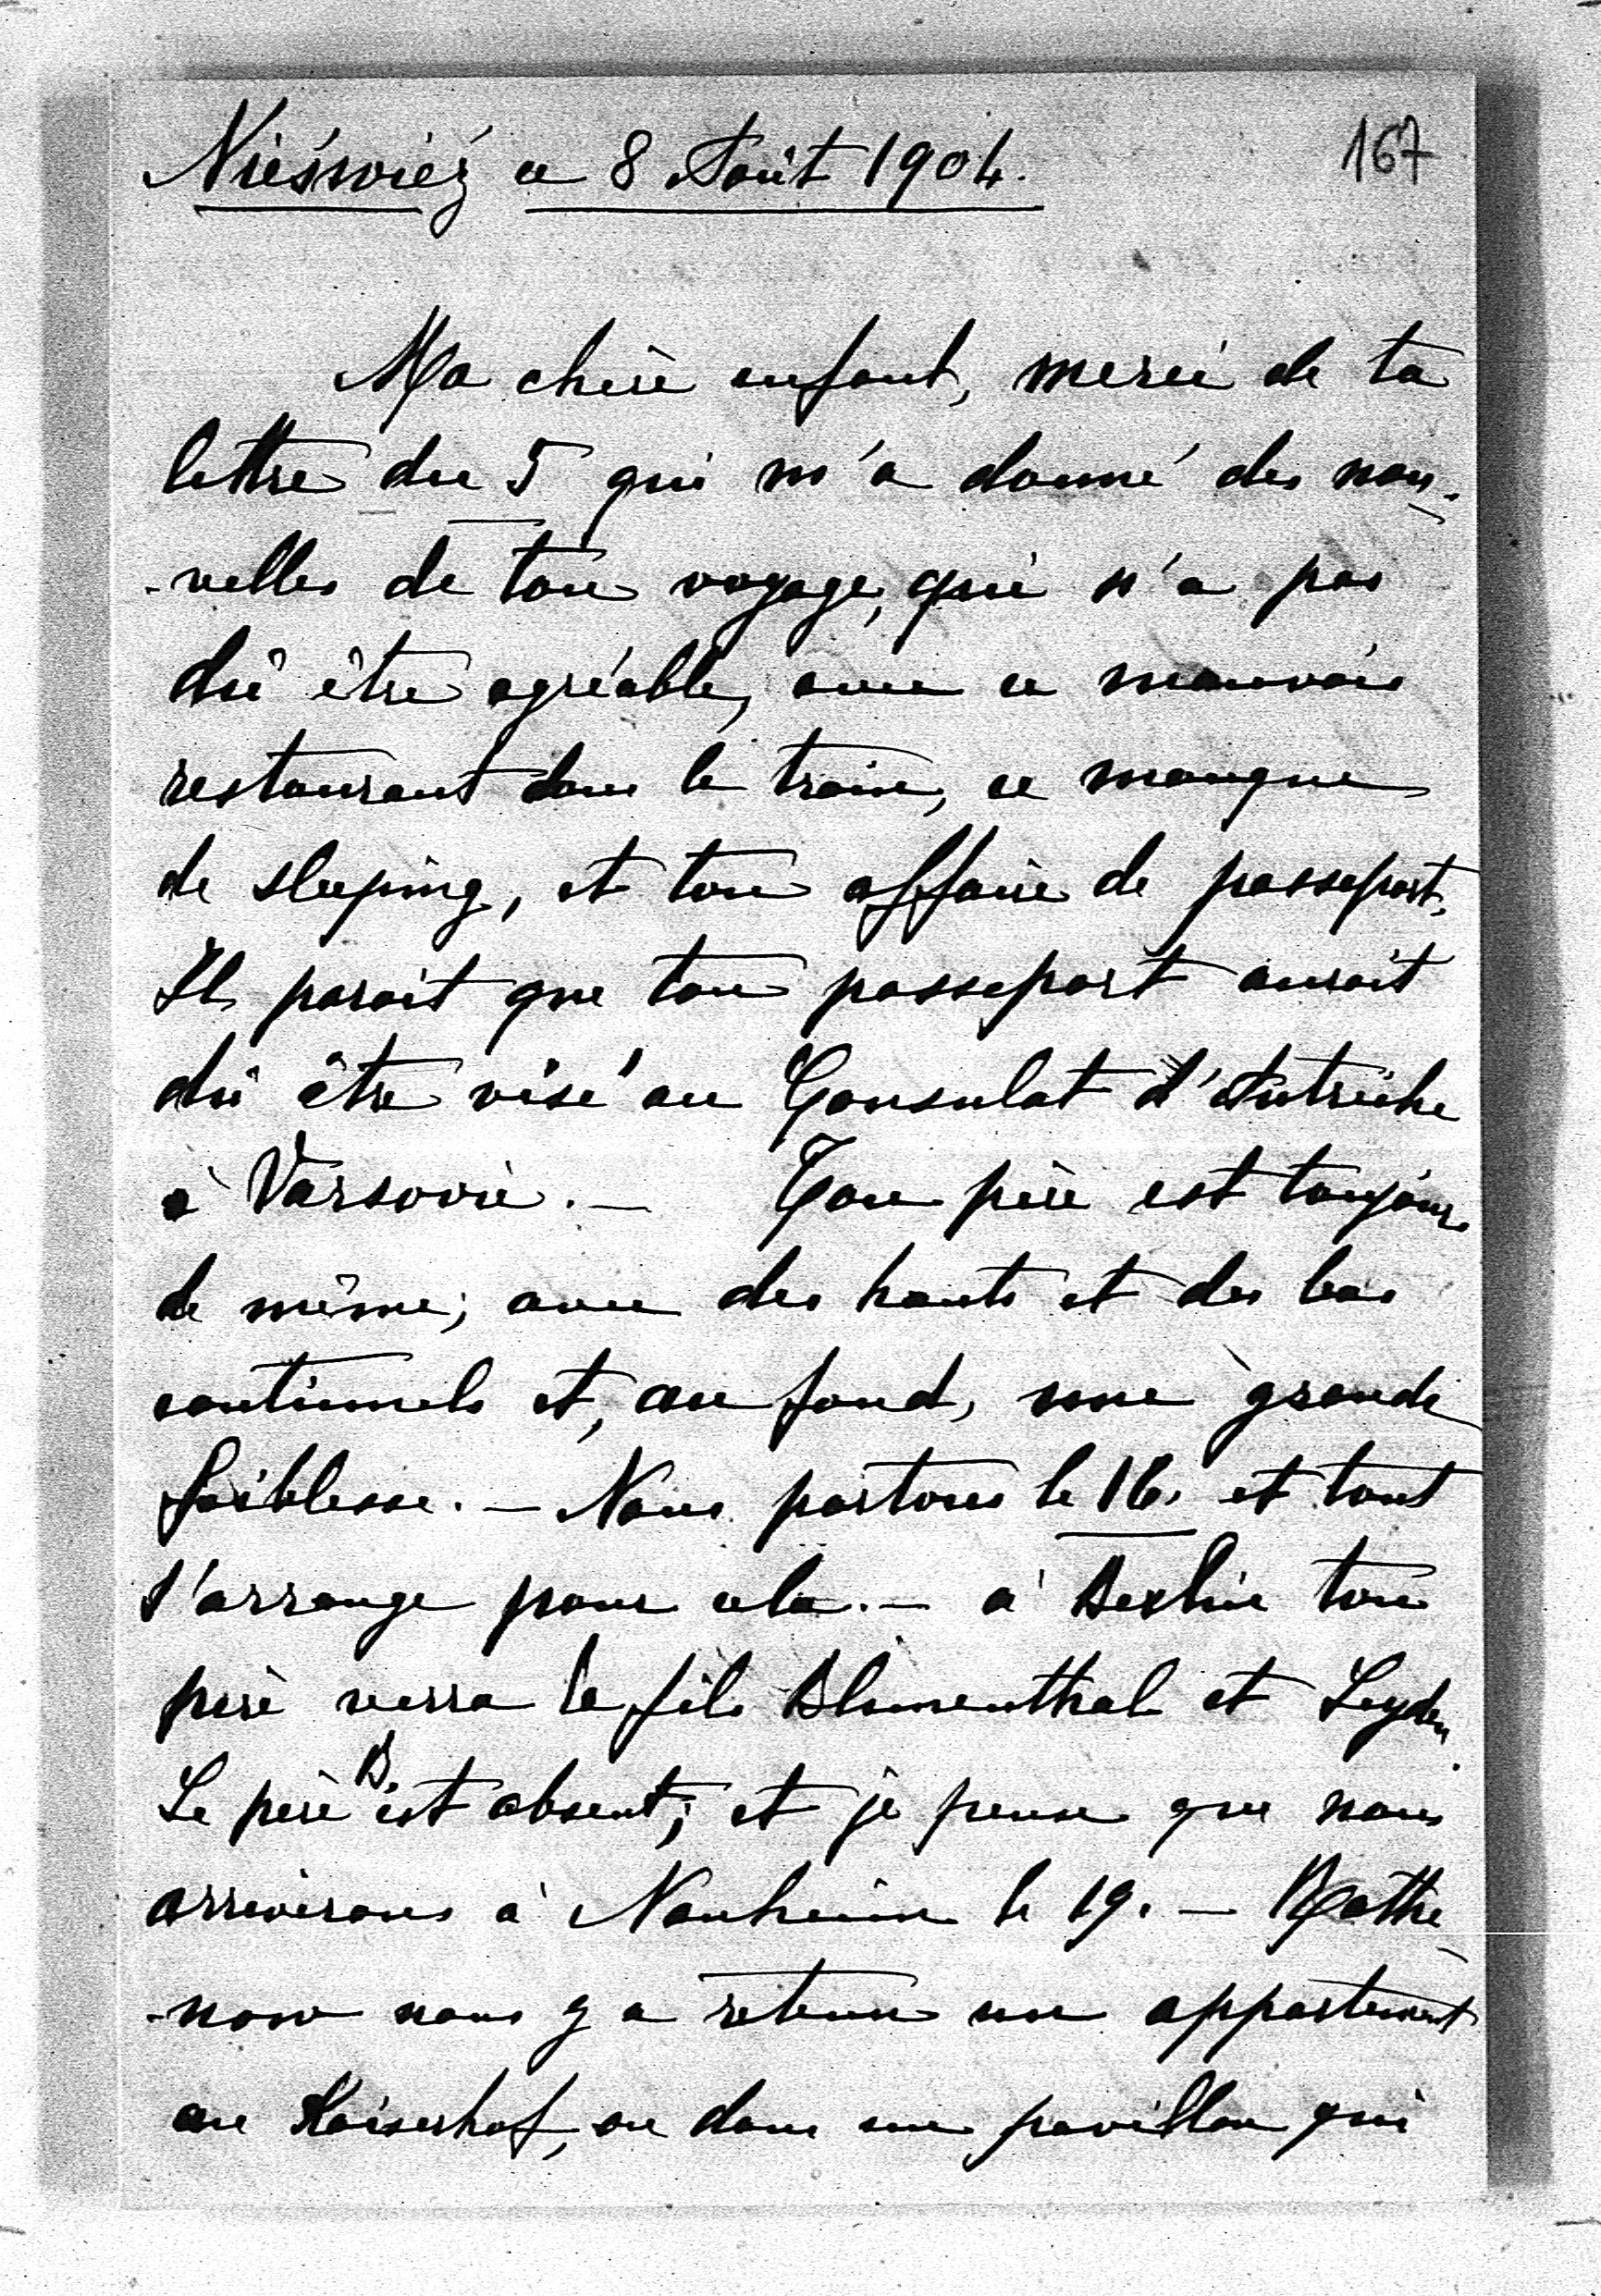 Nieśwież ce 8 Août 1904.
167
Ma chère enfant, merci de ta
lettre du 5 qui m'a donné des nou-
-velles de ton voyage, qui n'a pas
dû être agréable, avec ce mauvais
restaurant dans le train, ce manque
de sleeping, et ton affaire de passeport.
Il parait que ton passeport aurait
dû être visé au Consulat d'Autriche
à Varsovie. — Ton père est toujours
de même, avec des hauts et des bas
continuels et, au fond, une grande
faiblesse. — Nous partons le 16. et tout
s'arrange pour cela. — à Berlin ton
père verra le fils Blumenthal et Leyden.
Le père B. est absent; et je pense que nous
arriverons à Nauheim le 19. — Mathe
-now nous y a retenu un appartement
au Kaiserhof, ou dans un pavillon qui